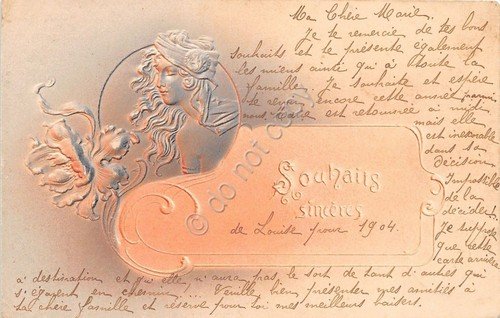 Ma Chère Marie.
Je te remercie de tes bons
souhaits et te présente également
les miens ainsi qu'à toute la
famille. Je souhaite et espère
te revoir encore cette année parmi
nous. Marie est retournée à midi
mais elle
est inexorable
dans sa
décision
Impossible
de la
décider!
Je suppose
que cette
carte arrivera
Souhaits
sincères
de Louise pour 1904.
à destination et qu'elle n'aura pas le sort de tant d'autres qui
s'égarent en chemin!... Veuille bien présenter mes amitiés à
ta chère famille et réserve pour toi mes meilleurs baisers.